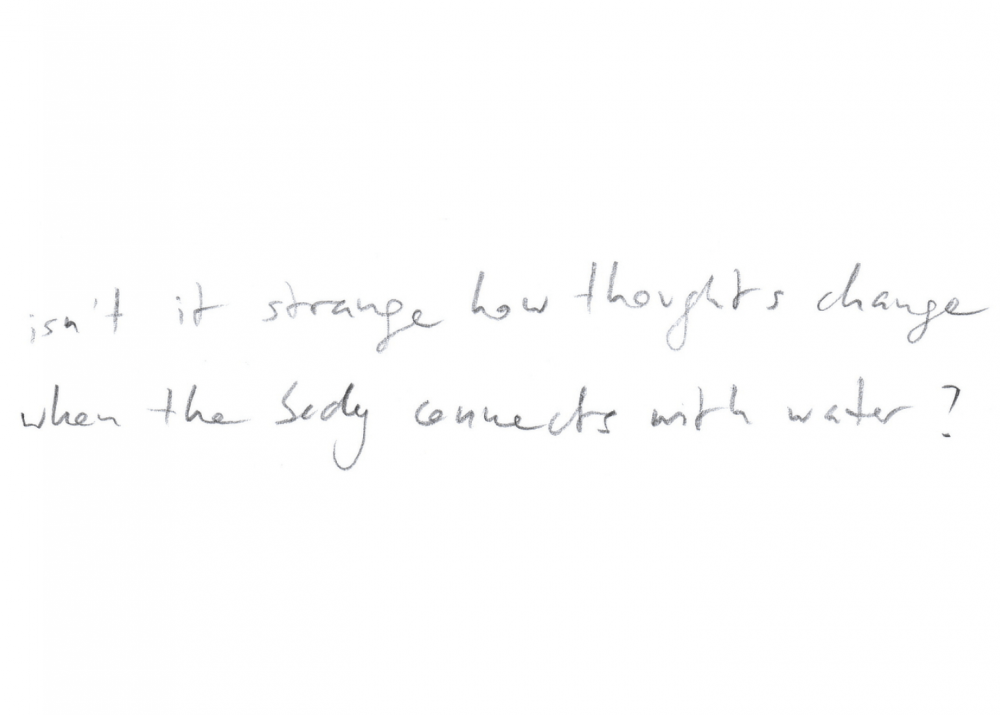 isn't it strange how thoughts change
when the body connects with water?